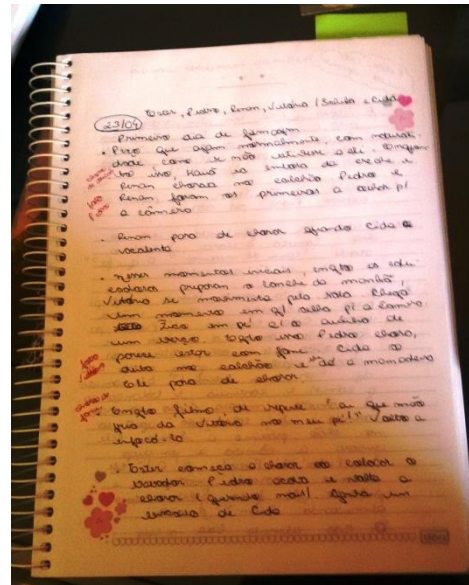 Ester, Pedro, Renan, Vitória / Sandra e Cida
23/04
Primeiro dia de filmagem
• Peço que ajam normalmente, com naturali-
dade como se não estivesse ali.
to isso, Kauã vai embora da creche e
Renan chorava no colchão Pedro e
Renan, foram os primeiros a olhar p/
a câmera
foco
Pedro
• Renan para de chorar quando Cida o
acalenta
• nesses momentos iniciais, enqto as edu-
cadoras preparam o lanche da manhã,
Vitória se movimenta pela sala Chega
um momento em q/ olha p/ a câmera.
Fica em pé c/ o auxílio de
um berço Enqto isso Pedro chora,
parece estar com fome. Cida o
deita no colchão e dá a mamadeira
Ele para de chorar.
foco
Vitória
• Enqto filmo, de repente "ai que mão
fria da Vitória no meu pé!" Volto a
enfocá-la
• Ester começa a chorar ao colocar o
babador Pedro acorda e volta a
chorar (querendo mais) Ganha um
de Cida